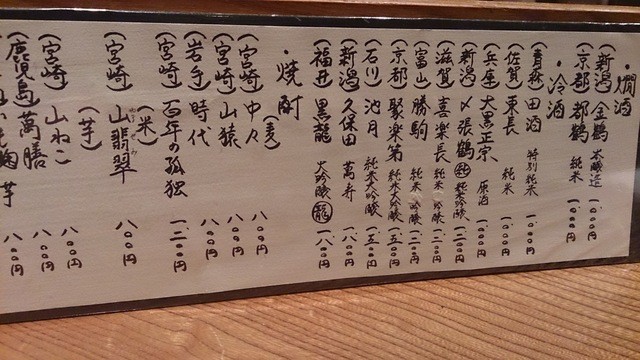 ・燗酒
（新潟）金鶴 本醸造 一、〇〇〇円
（京都）都鶴 純米 一、〇〇〇円
・冷酒
（青森）田酒 特別純米 一、〇〇〇円
（佐賀）東長 純米 一、〇〇〇円
（兵庫）大黒正宗 原酒 一、〇〇〇円
（新潟）〆張鶴 ㊢ 純米吟醸 一、二〇〇円
（滋賀）喜楽長 純米吟醸 一、二〇〇円
（富山）勝駒 純米吟醸 一、二〇〇円
（京都）聚楽第 純米大吟醸 一、五〇〇円
（石川）池月 純米大吟醸 一、五〇〇円
（新潟）久保田 萬寿 一、八〇〇円
（福井）黒龍 大吟醸 龍 一、八〇〇円
・焼酎
（麦）
（宮崎）中々 八〇〇円
（宮崎）山猿 八〇〇円
（岩手）時代 八〇〇円
（宮崎）百年の孤独 一、二〇〇円
（米）
（宮崎）山翡翠 八〇〇円
（芋）
（宮崎）山ねこ 八〇〇円
（宮崎）萬膳 八〇〇円
（鹿児島） 芋 八〇〇円